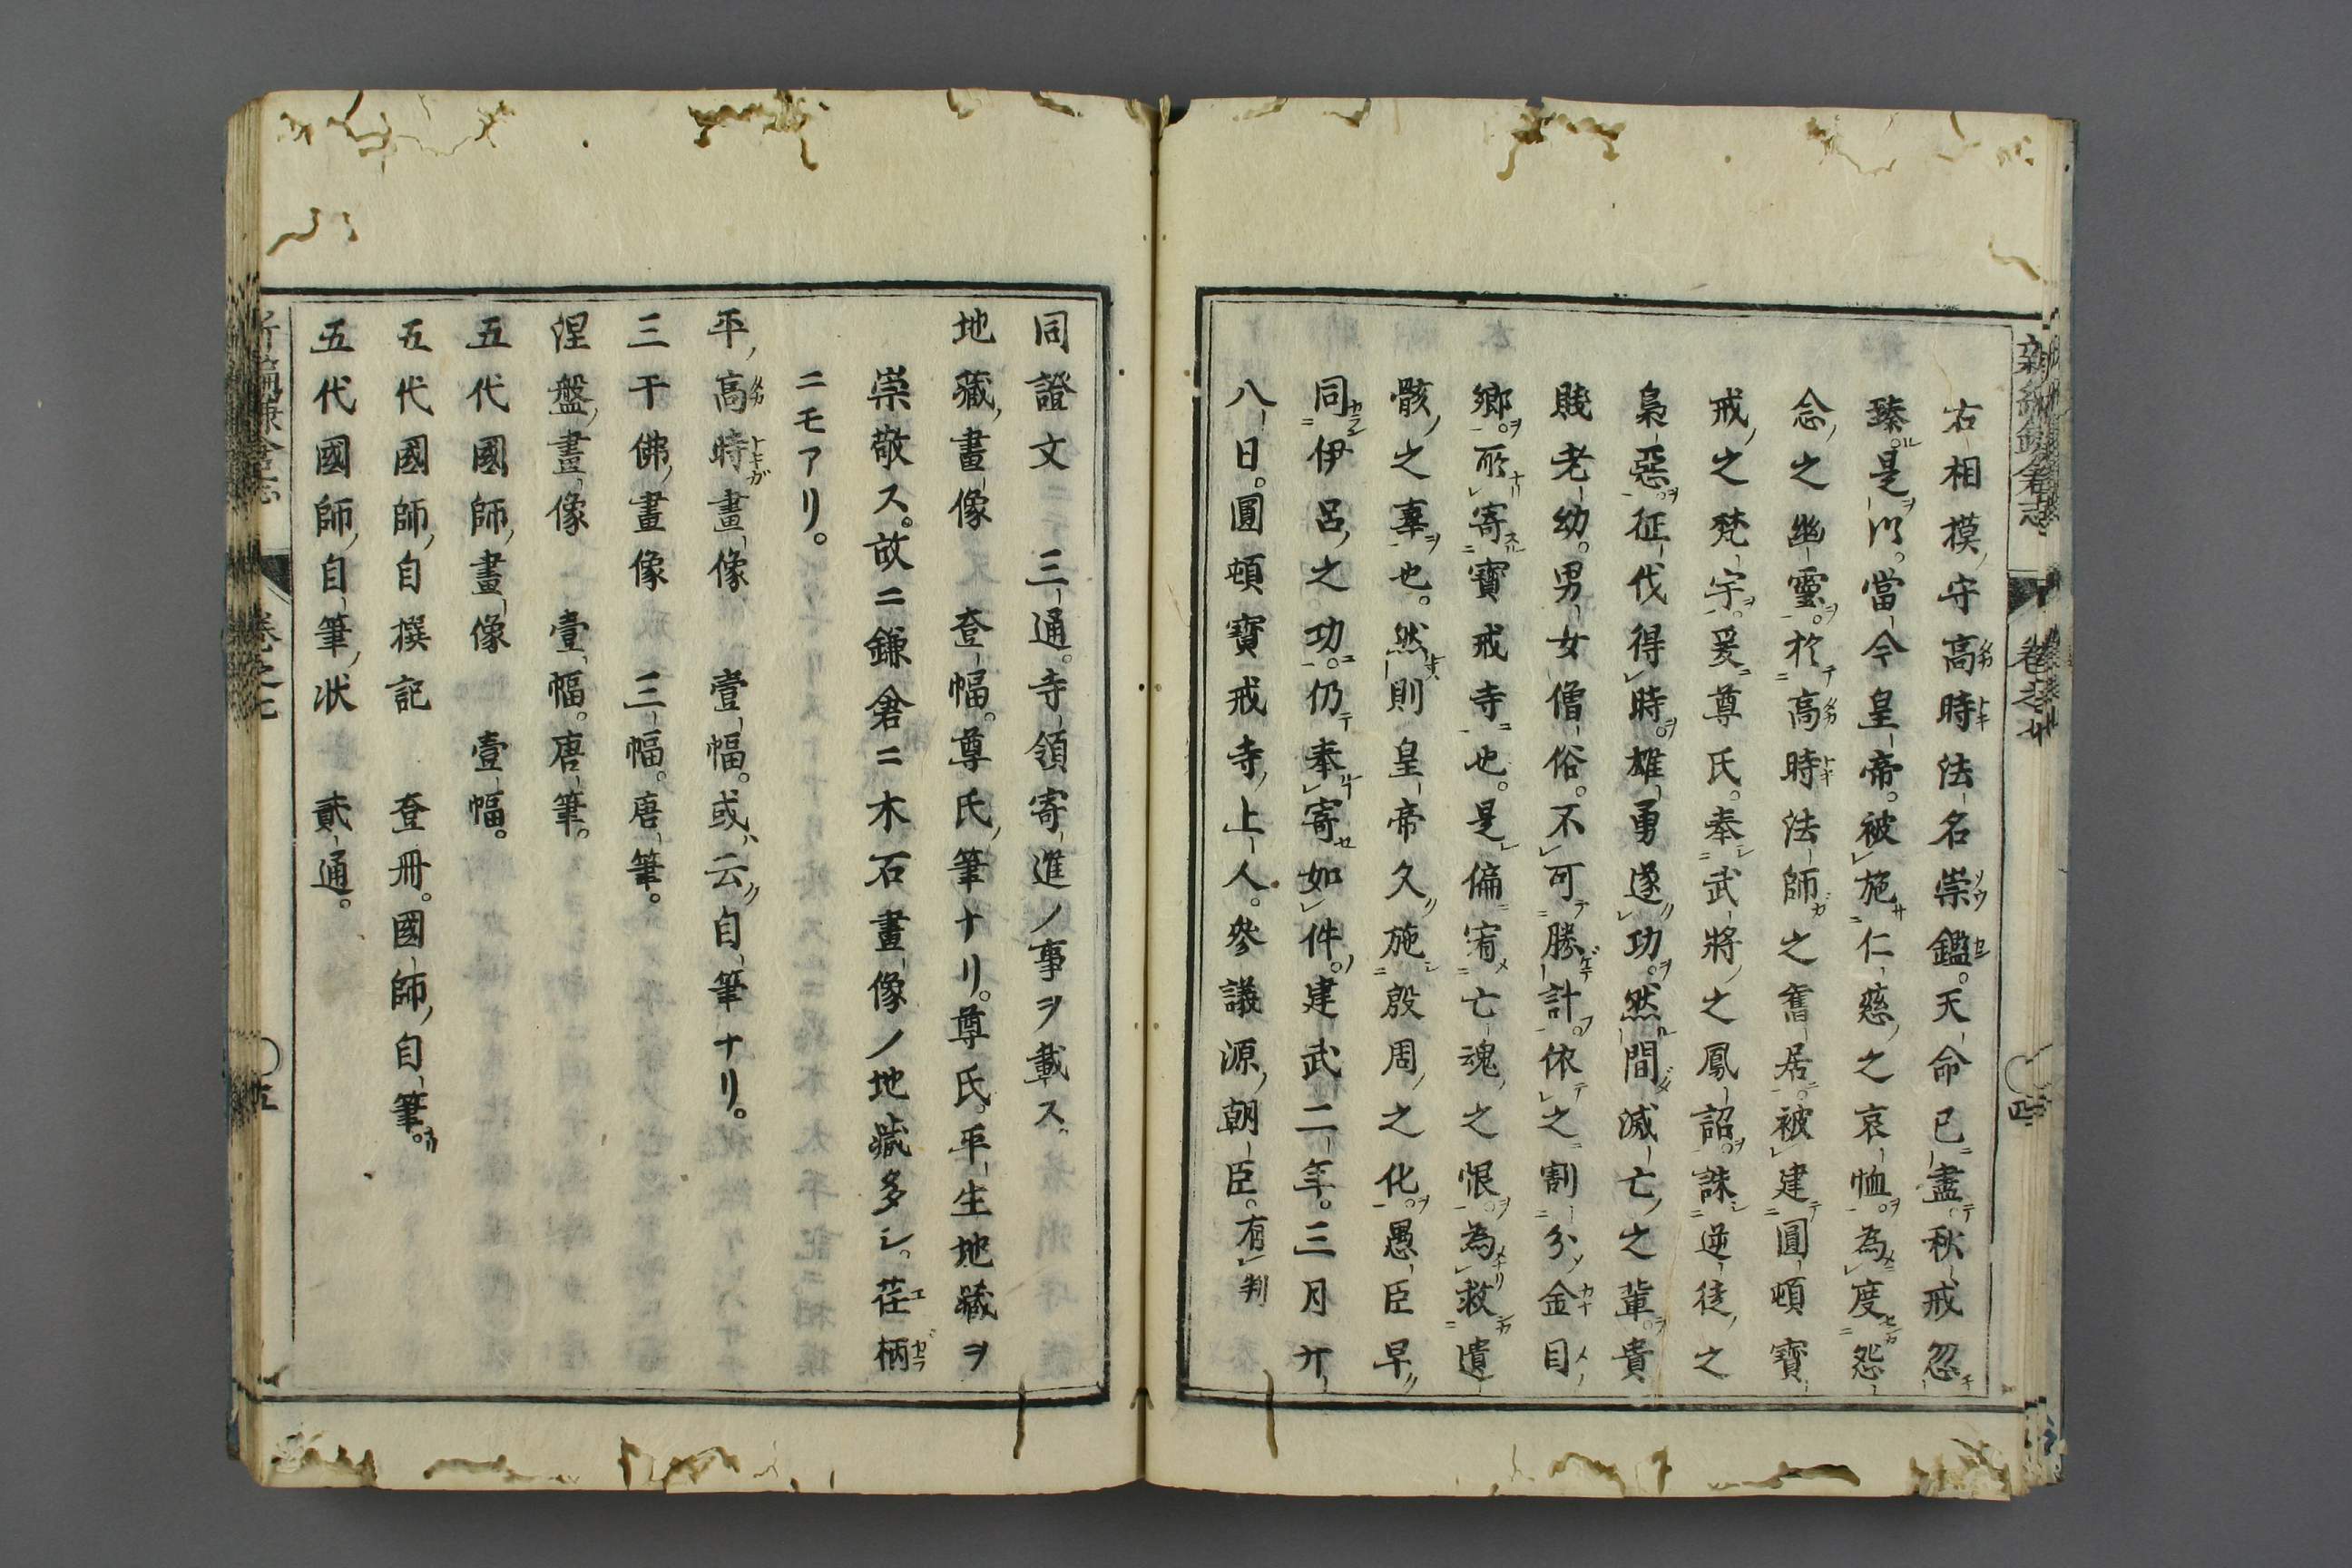 右相摸守高時法名崇鑑。天命已盡。秋戒忽
臻。是以。當今皇帝。被施仁慈之哀恤。為度怨
念之幽靈。於高時法師之舊居。被建圓頓寶
戒之梵宇。爰尊氏。奉武將之鳳詔。誅逆徒之
梟惡。征伐得時。雄勇遂功。然間滅亡之輩。貴
賤老幼。男女僧俗。不可勝計。依之割分金目
鄉。所寄寶戒寺也。是偏宥亡魂之恨。為救遺
骸之辜也。然則皇帝久施殷周之化。愚臣早
同伊呂之功。仍奉寄如件。建武二年。三月廾
八日。圓頓寶戒寺上人。參議源朝臣。有判
同證文 三通。寺領寄進ノ事ヲ載ス。
地藏畫像 壹幅。尊氏筆ナリ。尊氏。平生地藏ヲ
崇敬ス。故ニ鎌倉ニ木石畫像ノ地藏多シ。荏柄
ニモアリ。
平高時畫像 壹幅。或云自筆ナリ。
三千佛畫像 三幅。唐筆。
涅盤畫像 壹幅。唐筆。
五代國師畫像 壹幅。
五代國師自撰記 壹冊。國師自筆。
五代國師自筆狀 貳通。